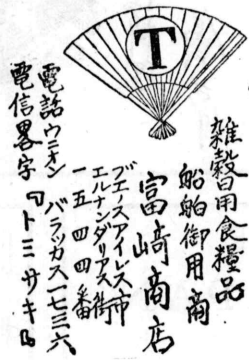 T
雑穀日用食糧品
船舶御用商
富崎商店
ブエノスアイレス市
エルナンダリアス街
一五四四番
電話ウニオン バラッカス一七三六、
電信畧字『トミサキ』